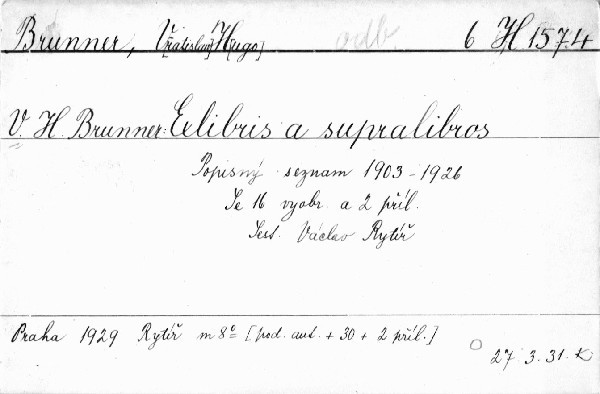 Brunner, V[ratislav] H[ugo] odb. 6 H 1574
V. H. Brunner: Exlibris a supralibros
Popisný seznam 1903-1926
Se 16 vyobr. a 2 příl.
Sest. Václav Rytíř
Praha 1929 Rytíř m 8° [pod. aut. + 30 + 2 příl.]
27 3. 31. K